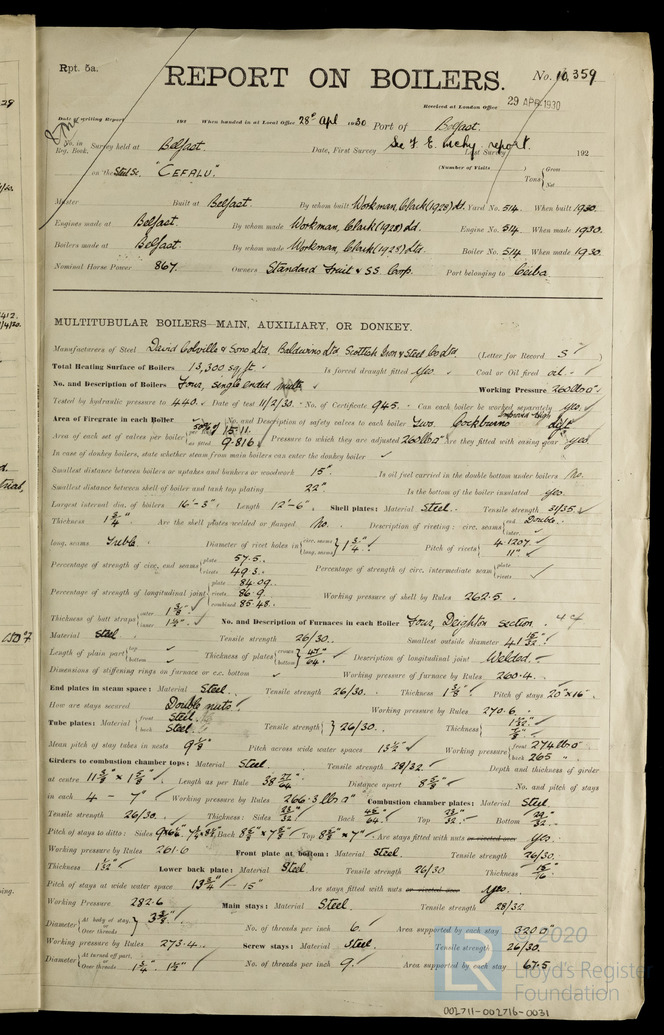 Rpt. 5a.
REPORT ON BOILERS.
No. 10,359
Received at London Office 29 APR 1930
Date of writing Report 192 When handed in at Local Office 28th Apl 1930 Port of Belfast.
No. in Survey held at Belfast Date, First Survey See F. E. Mchy report. Last Survey 192
Reg. Book. (Number of Visits
on the Steel Sc. "CEFALU". Tons { Gross Net
Master Built at Belfast By whom built Workman, Clark (1928) Ld. Yard No. 514 When built 1930.
Engines made at Belfast. By whom made Workman, Clark (1928) Ld. Engine No. 514 When made 1930.
Boilers made at Belfast. By whom made Workman, Clark (1928) Ltd. Boiler No. 514 When made 1930.
Nominal Horse Power 867. Owners Standard Fruit & SS. Corp. Port belonging to Ceiba
MULTITUBULAR BOILERS—MAIN, AUXILIARY, OR DONKEY.
Manufacturers of Steel David Colville & Sons Ltd, Baldwins Ltd, Scottish Iron & Steel Co Ltd (Letter for Record S )
Total Heating Surface of Boilers 13,300 sq. ft. Is forced draught fitted Yes Coal or Oil fired oil.
No. and Description of Boilers Four, single ended multr. Working Pressure 260 lbs □"
Tested by hydraulic pressure to 440. Date of test 11/2/30. No. of Certificate 945. Can each boiler be worked separately yes.
Area of Firegrate in each Boiler No. and Description of safety valves to each boiler Two. Cockburns Improved High Lift
Area of each set of valves per boiler { per Rule 15.11. as fitted 9.816 Pressure to which they are adjusted 260 lbs □" Are they fitted with easing gear yes
In case of donkey boilers, state whether steam from main boilers can enter the donkey boiler ✓
Smallest distance between boilers or uptakes and bunkers or woodwork 15" Is oil fuel carried in the double bottom under boilers No.
Smallest distance between shell of boiler and tank top plating 22" Is the bottom of the boiler insulated yes.
Largest internal dia. of boilers 16'-3" Length 12'-6" Shell plates: Material Steel. Tensile strength 31/35
Thickness 1 3/4" Are the shell plates welded or flanged No. Description of riveting: circ. seams { end Double. inter.
long. seams Treble Diameter of rivet holes in { circ. seams long. seams } 1 3/4" Pitch of rivets { 4.1207. 11"
Percentage of strength of circ. end seams { plate 57.5. rivets 49.3. Percentage of strength of circ. intermediate seam { plate rivets
Percentage of strength of longitudinal joint { plate 84.09. rivets 86.9. combined 85.48. Working pressure of shell by Rules 262.5.
Thickness of butt straps { outer 1 3/8" inner 1 1/2" No. and Description of Furnaces in each Boiler Four, Deighton section.
Material Steel Tensile strength 26/30. Smallest outside diameter
Length of plain part { top bottom Thickness of plates { crown 47/64" bottom Description of longitudinal joint Welded.
Dimensions of stiffening rings on furnace or c.c. bottom ✓ Working pressure of furnace by Rules 260.4.
End plates in steam space: Material Steel. Tensile strength 26/30. Thickness 1 3/8" Pitch of stays 20" x 16".
How are stays secured Double nuts. Working pressure by Rules 270.6.
Tube plates: Material { front Steel. back Steel. Tensile strength } 26/30. Thickness { 1 1/32" 7/8"
Mean pitch of stay tubes in nests 9 1/8" Pitch across wide water spaces 13 1/2" Working pressure { front 274 lbs □" back 265 "
Girders to combustion chamber tops: Material Steel. Tensile strength 28/32 Depth and thickness of girder
at centre 11 3/8" x 1 5/8" Length as per Rule 38 27/64 Distance apart 8 5/8" No. and pitch of stays
in each 4 - 7" Working pressure by Rules 266.3 lbs □" Combustion chamber plates: Material Steel.
Tensile strength 26/30. Thickness: Sides 23/32" Back 45/64" Top 23/32" Bottom 29/32"
Pitch of stays to ditto: Sides Back 8 5/8" x 7 5/8" Top 8 5/8" x 7" Are stays fitted with nuts or riveted over Yes.
Working pressure by Rules 261.6 Front plate at bottom: Material Steel Tensile strength 26/30.
Thickness 1 1/32" Lower back plate: Material Steel Tensile strength 26/30 Thickness 15/16"
Pitch of stays at wide water space 13 3/4" - 15" Are stays fitted with nuts or riveted over Yes.
Working Pressure 282.6 Main stays: Material Steel. Tensile strength 28/32
Diameter { At body of stay, or Over threads } 3 3/8" No. of threads per inch 6. Area supported by each stay 320 □"
Working pressure by Rules 273.4. Screw stays: Material Steel. Tensile strength 26/30.
Diameter { At turned off part, or Over threads 1 3/4" 1 1/2" No. of threads per inch 9. Area supported by each stay 67.5
© 2020
Lloyd's Register
Foundation
002711-002716-0031